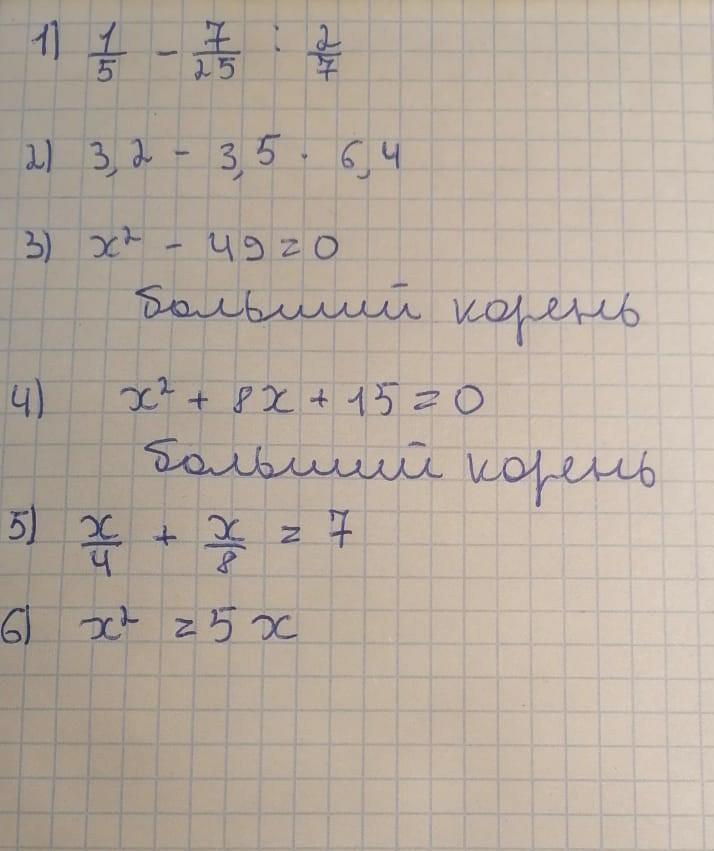 1) 1/5 - 7/25 : 2/7
2) 3,2 - 3,5 · 6,4
3) x² - 49 = 0
больший корень
4) x² + 8x + 15 = 0
больший корень
5) x/4 + x/8 = 7
6) x² = 5x